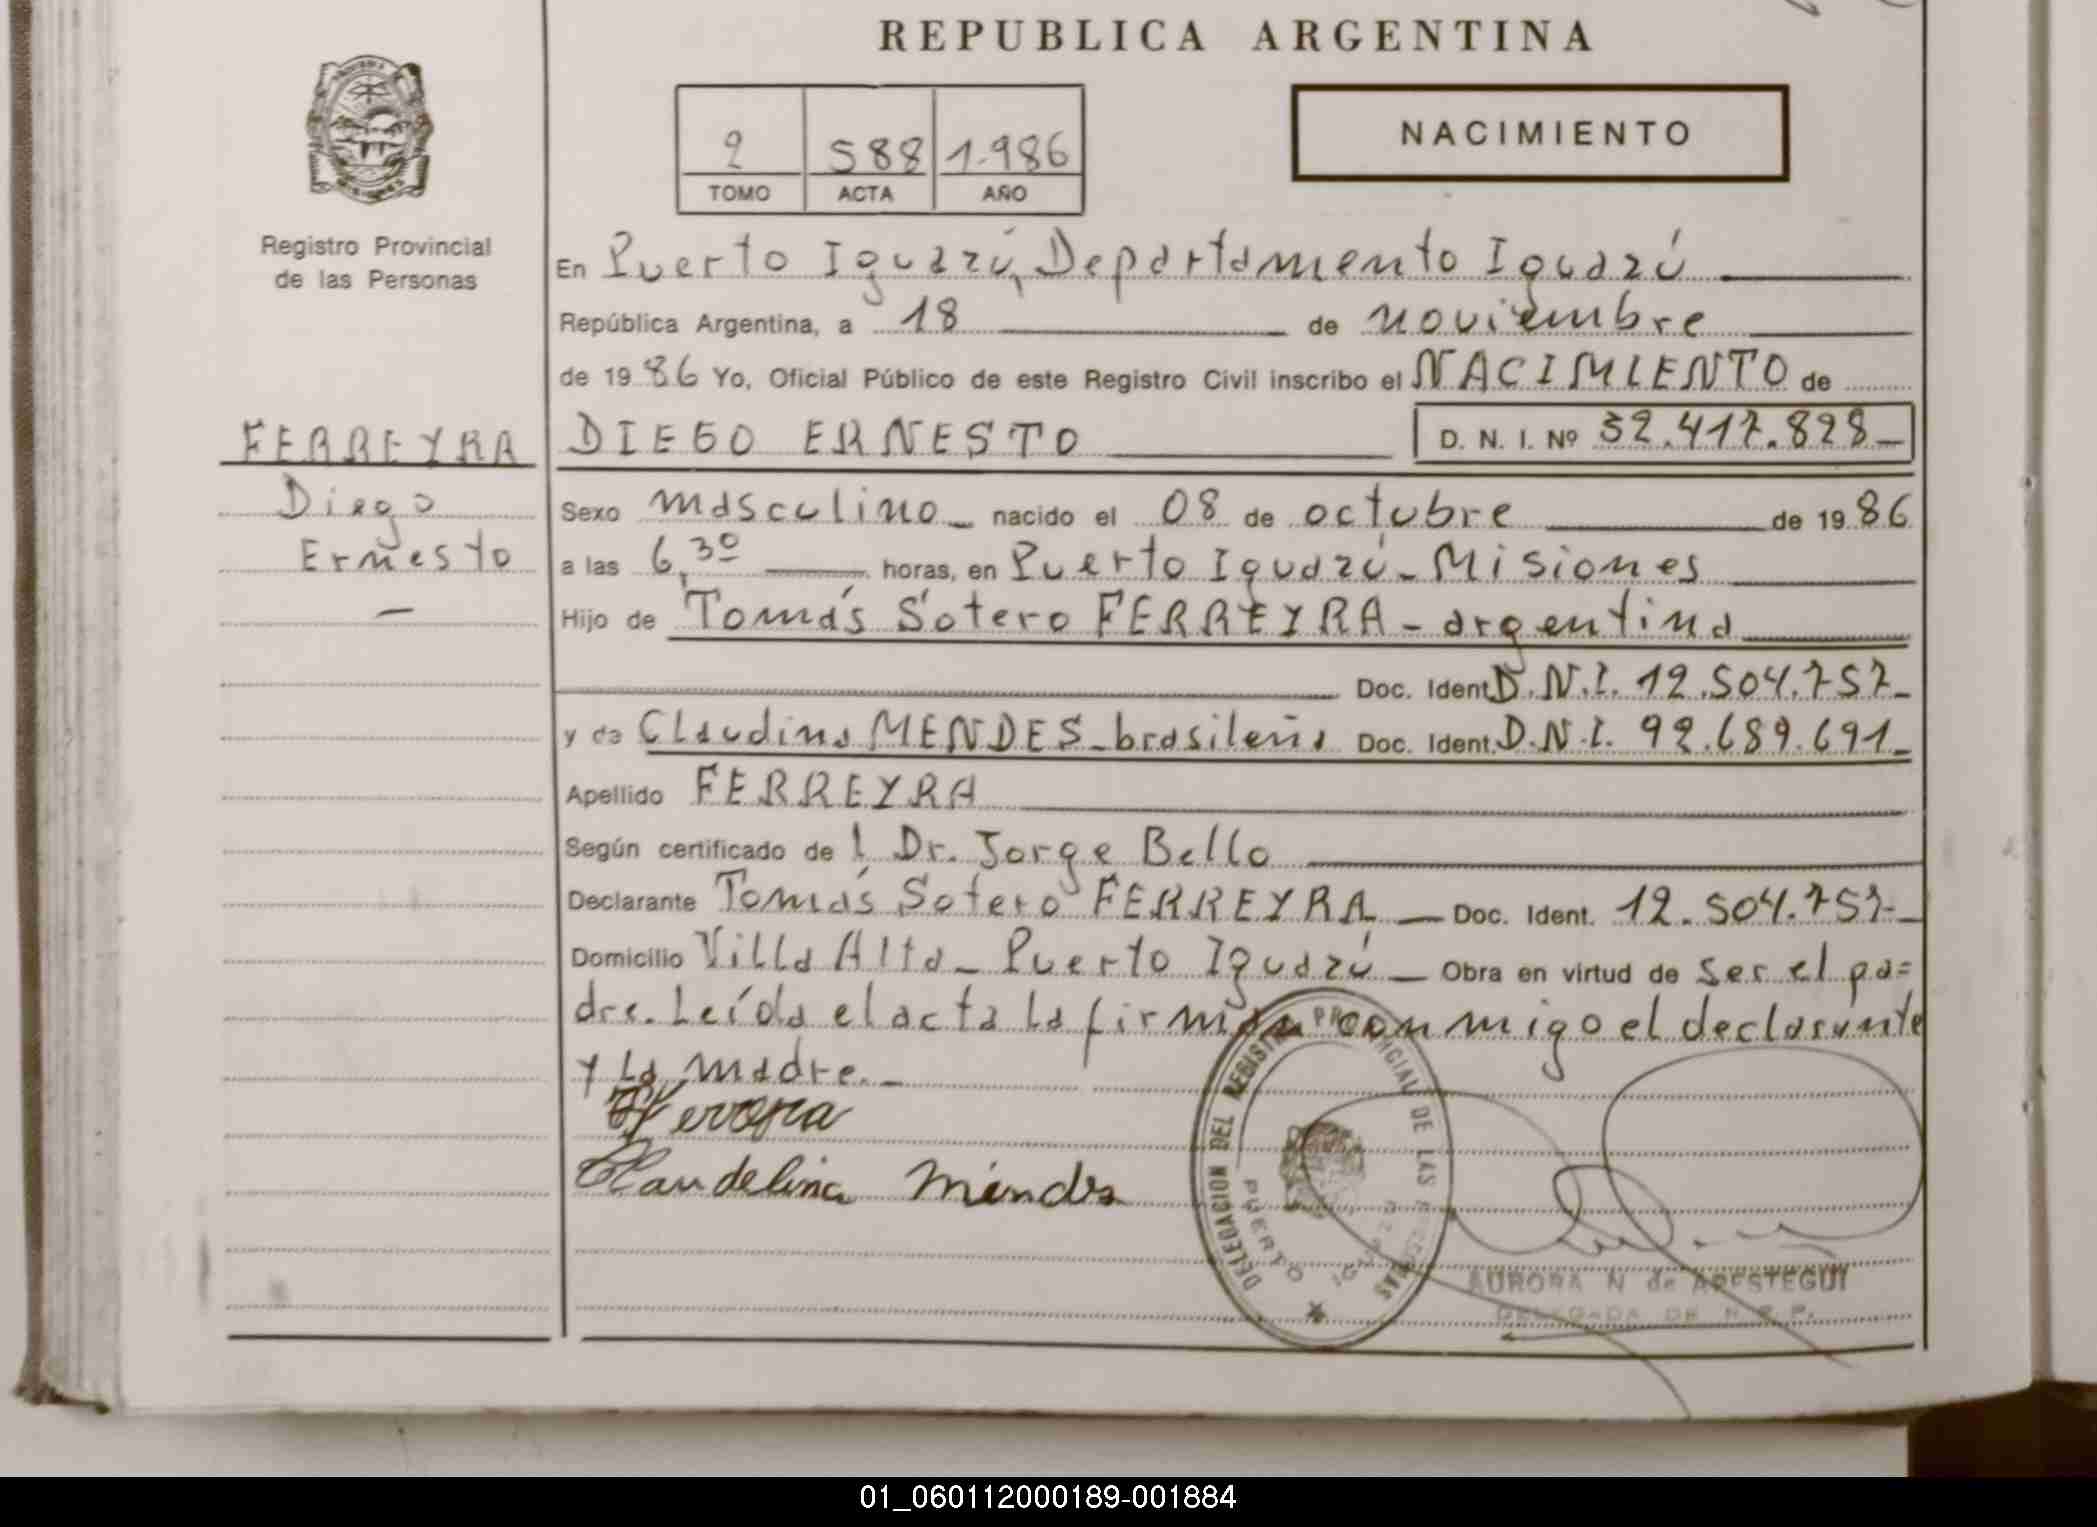 REPUBLICA ARGENTINA
2 588 1.986
TOMO ACTA AÑO
NACIMIENTO
Registro Provincial
de las Personas
En Puerto Iguazú, Departamento Iguazú
República Argentina, a 18 de noviembre
de 1986 Yo, Oficial Público de este Registro Civil inscribo el NACIMIENTO de
FERREYRA
DIEGO ERNESTO D. N. I. Nº 32.417.828
Diego
Ernesto
Sexo masculino nacido el 08 de octubre de 1986
a las 6,30 horas, en Puerto Iguazú - Misiones
Hijo de Tomás Sotero FERREYRA - argentina
Doc. Ident. D.N.I. 12.504.757
y de Claudina MENDES - brasileña Doc. Ident. D.N.I. 92.689.691
Apellido FERREYRA
Según certificado de l Dr. Jorge Bello
Declarante Tomás Sotero FERREYRA Doc. Ident. 12.504.757
Domicilio Villa Alta - Puerto Iguazú Obra en virtud de ser el pa=
dre. Leída el acta la firman conmigo el declarante
y la madre.
Claudelina Mendes
DELEGACION DEL REGISTRO PROVINCIAL DE LAS PERSONAS
PUERTO IGUAZU
AURORA N de ARESTEGUI
DELEGADA DE R.P.P.
01_060112000189-001884